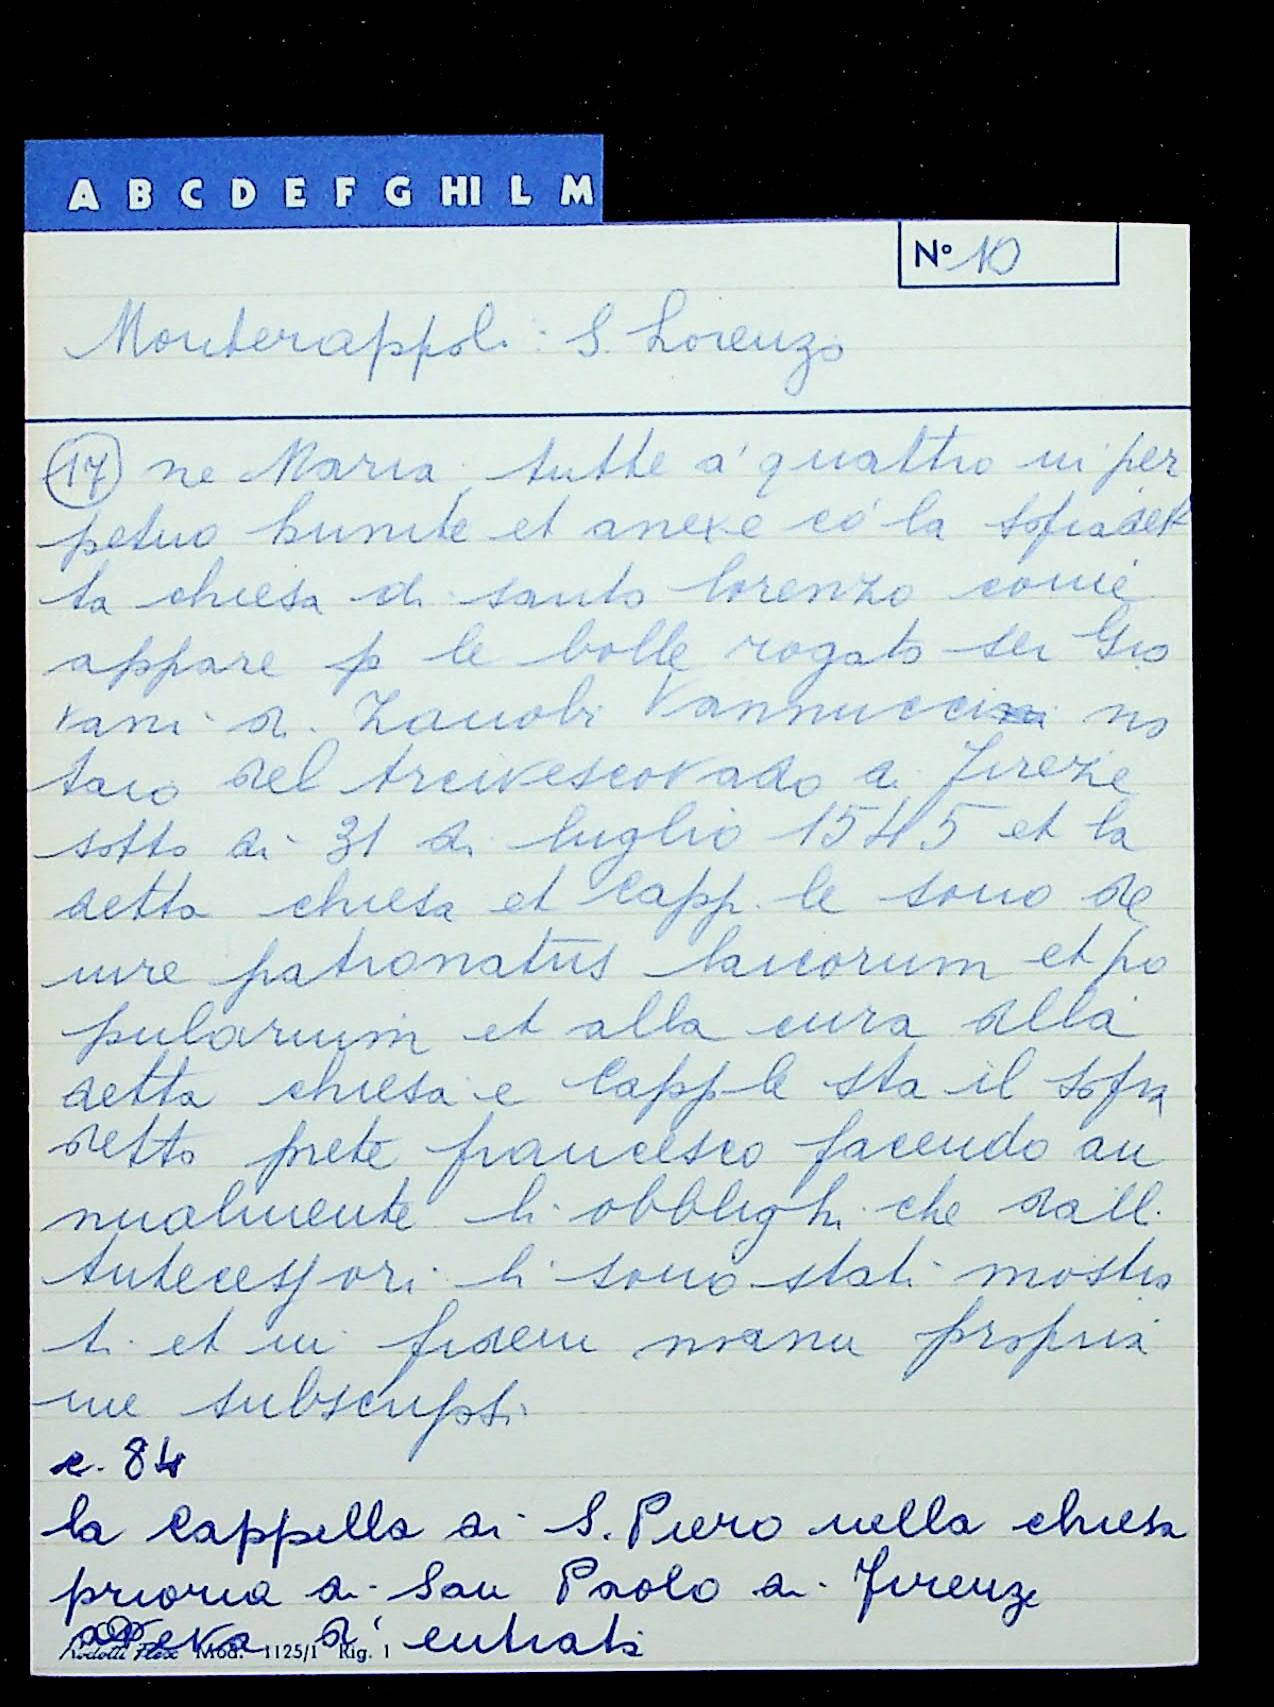 A B C D E F G HI L M
N° 10
Monterappoli: S. Lorenzo
17 ne Maria, tutte a' quattro in per
petuo hunite et anexe co' la sopradet
ta chiesa di santo lorenzo come
appare p le bolle rogato ser Gio
vani di Zanobi Vannucci no
taio del Arcivescovado di Fireze
sotto di 31 di luglio 1545 et la
detta chiesa et Capp.le sono de
iure patronatus laicorum et po
pularium et alla cura della
detta chiesa e Capp.le sta il sopra
detto prete francesco facendo an
nualmente li obblighi che dalli
Antecessori li sono stati mostra
ti et in fidem manu propria
me subscripsi
c. 84
la Cappella di S. Piero nella chiesa
prioria di San Paolo di Firenze
aveva d' entrata
Mod. 1125/1 Rig. 1